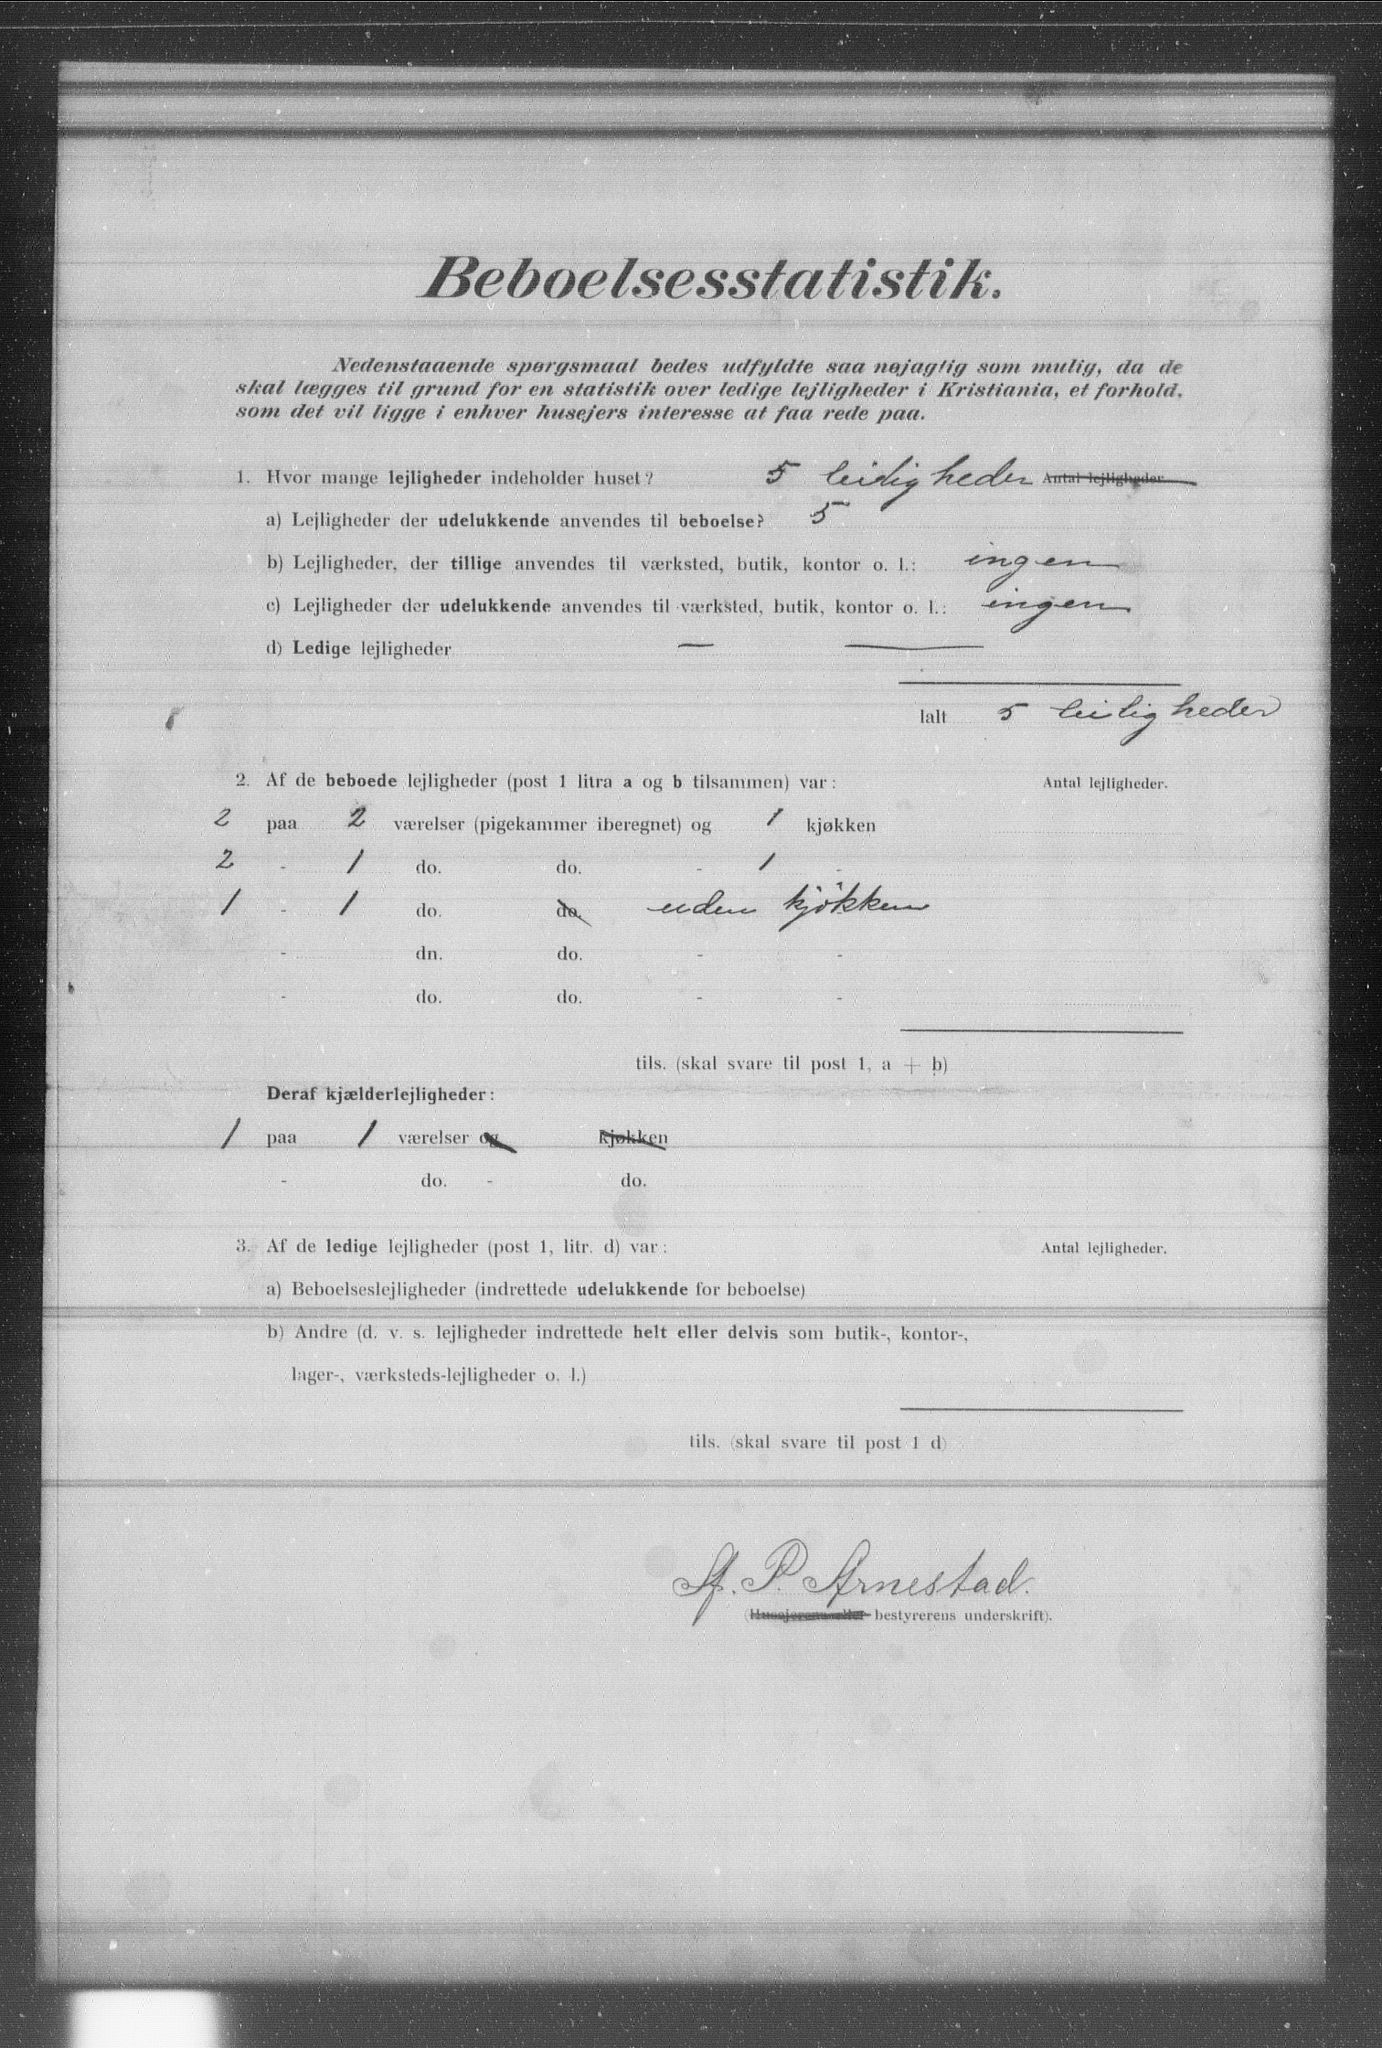 Beboelsesstatistik.
Nedenstaaende spørgsmaal bedes udfyldte saa nøjagtig som mulig, da de
skal lægges til grund for en statistik over ledige lejligheder i Kristiania, et forhold,
som det vil ligge i enhver husejers interesse at faa rede paa.
1. Hvor mange lejligheder indeholder huset? 5 leiligheder Antal lejligheder
a) Lejligheder der udelukkende anvendes til beboelse? 5
b) Lejligheder, der tillige anvendes til værksted, butik, kontor o. l.: ingen
c) Lejligheder der udelukkende anvendes til værksted, butik, kontor o. l.: ingen
d) Ledige lejligheder — —
Ialt 5 leiligheder
2. Af de beboede lejligheder (post 1 litra a og b tilsammen) var: Antal lejligheder.
2 paa 2 værelser (pigekammer iberegnet) og 1 kjøkken
2 - 1 do. do. - 1 -
1 - 1 do. do. uden kjøkken
- dn. do. - -
- do. do. - -
tils. (skal svare til post 1, a + b)
Deraf kjælderlejligheder:
1 paa 1 værelser og kjøkken
- do. - do.
3. Af de ledige lejligheder (post 1, litr. d) var: Antal lejligheder.
a) Beboelseslejligheder (indrettede udelukkende for beboelse)
b) Andre (d. v. s. lejligheder indrettede helt eller delvis som butik-, kontor-,
lager-, værksteds-lejligheder o. l.)
tils. (skal svare til post 1 d)
P. Arnestad.
(Husejerens eller bestyrerens underskrift).